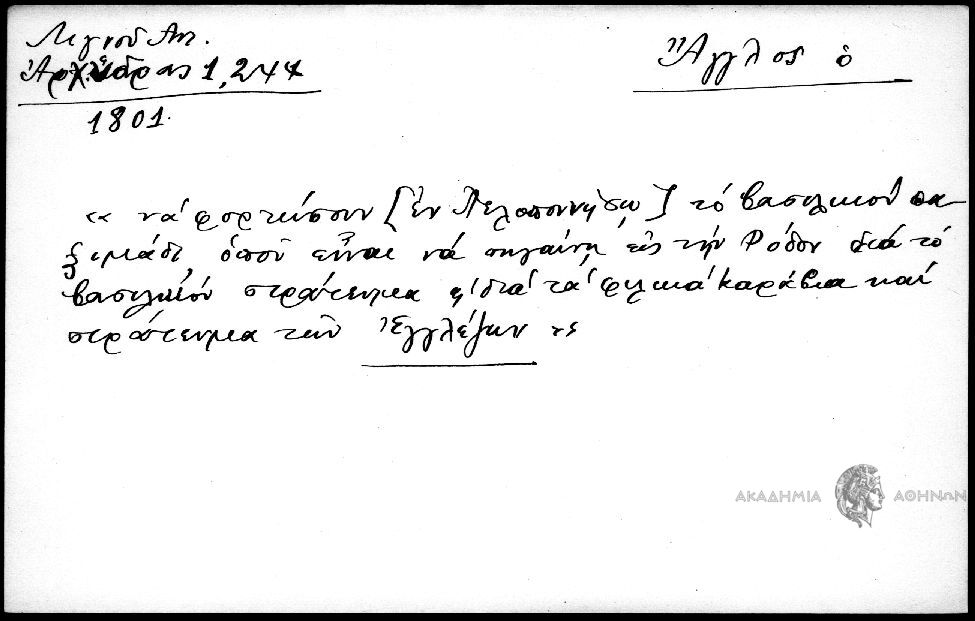 Λιγνοῦ Ἀντ.
Ἀρχ. Ὕδρας 1, 244
1801.
Ἄγγλος ὁ
« νά φορτώσουν [ἐν Πελοποννήσῳ] τό βασιλικόν πα-
ξιμάδι ὁποῦ εἶναι νά πηγαίνῃ εἰς τήν Ρόδον διά τό
βασιλικόν στράτευμα κ' διά τά φιλικά καράβια καί
στράτευμα τῶν Ἐγγλέζων
ΑΚΑΔΗΜΙΑ ΑΘΗΝΩΝ